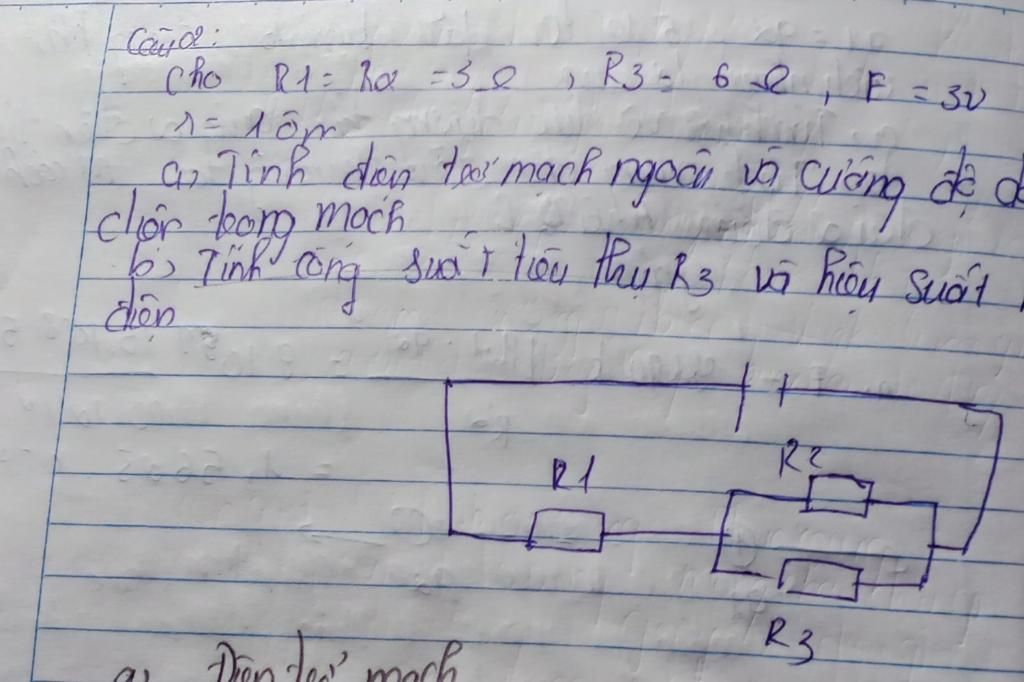 Câu 2:
Cho R1 = R2 = 3 Ω, R3 = 6 Ω, E = 3V
r = 1 ôm
a, Tính điện trở mạch ngoài và cường độ d
điện trong mạch
b, Tính công suất tiêu thụ R3 và hiệu suất
điện
R1
R2
R3
a, Điện trở mạch